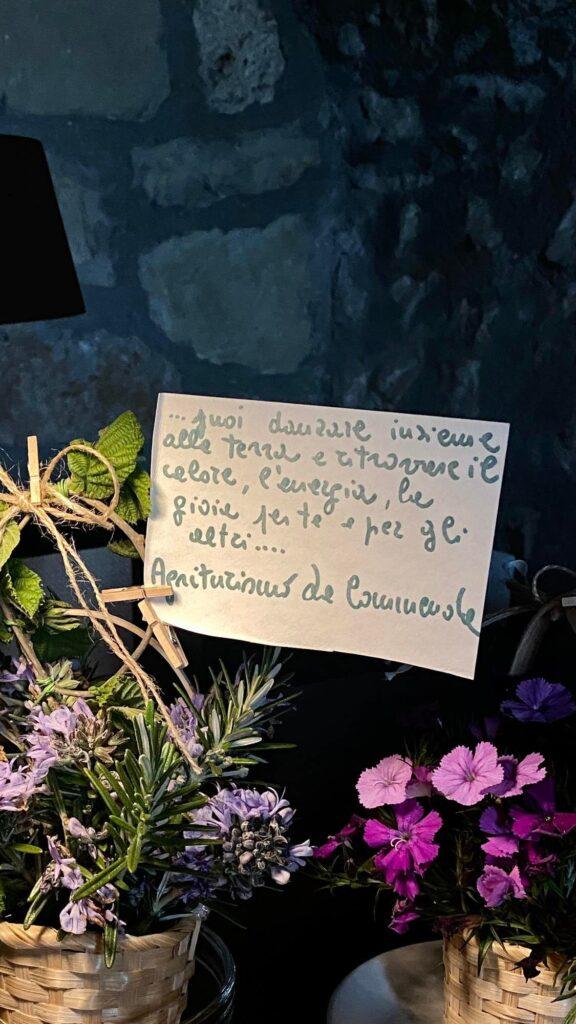 ... puoi danzare insieme
alla terra e ritrovare il
calore, l'energia, la
gioia per te e per gli
altri....
Agriturismo La Commenda